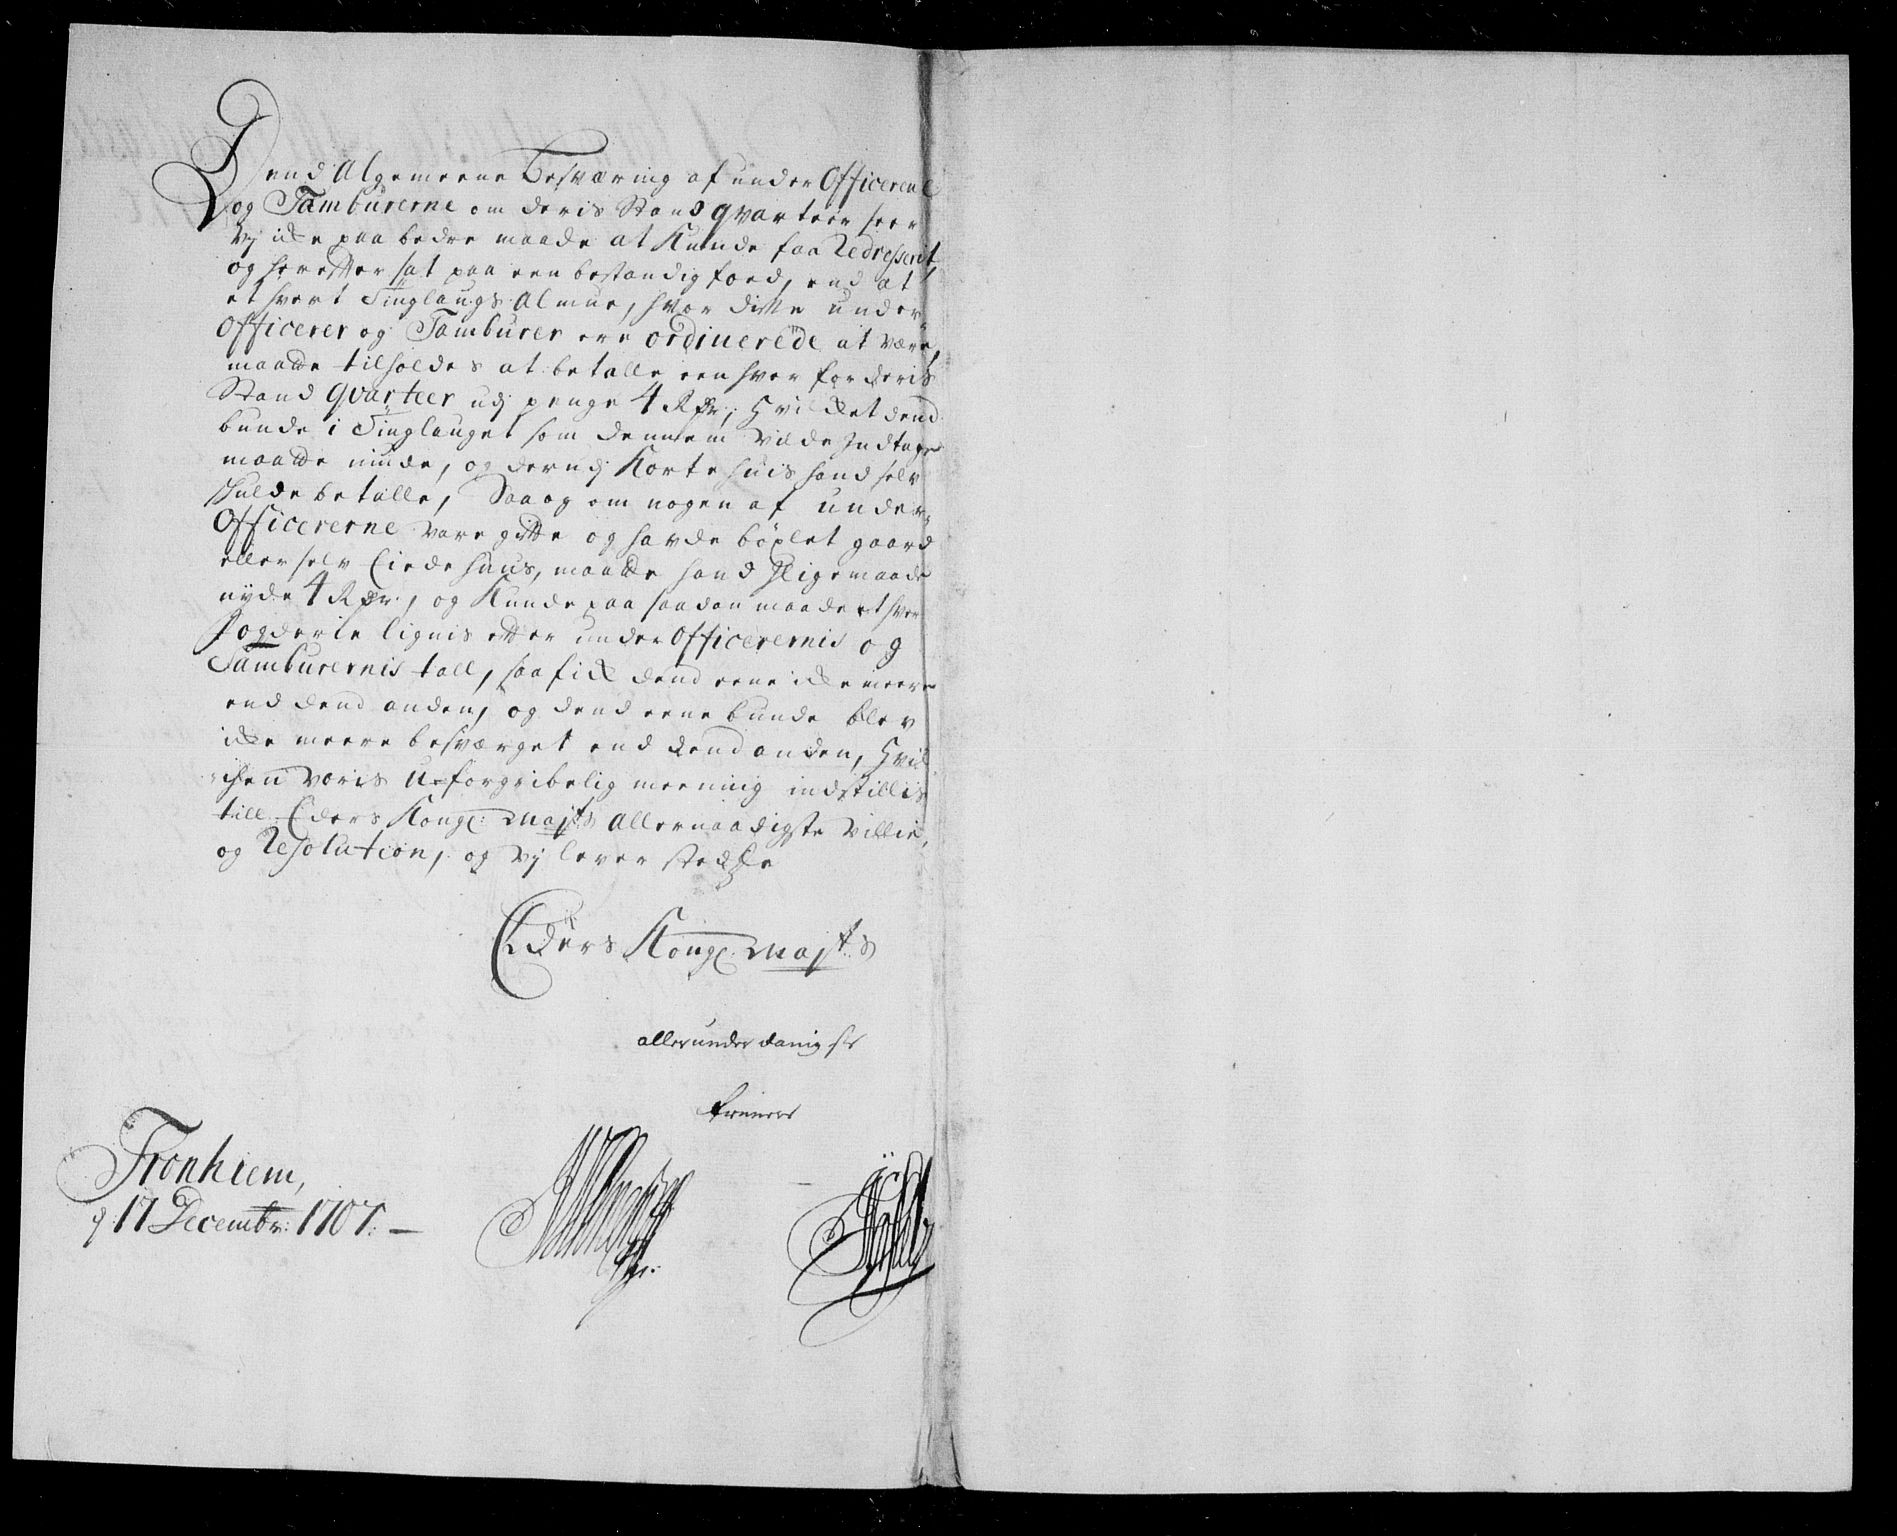 Dend Algemeene Besværing af under Officerene
og Tamburerne om deris Stand qvarteer seer
vj icke paa bedre maade at Kunde faa Redresserit,
og herefter sat paa een bestandig foed, end at
et hvert Tinglaugs Almue, hvor disse under
Officerer og Tamburer ere ordinerede at være,
maatte tilholdes at betalle een hver for deris
Stand qvarteer udj penge 4 Rdr, Hvilcket dend
bunde i Tinglauget som dennem vilde Indtage
maatte niude, og derudj Korte huis hand selv
skulde betalle, Saa og om nogen af under
Officererne vare gifte og hafde böxlet gaard
eller selv Eiede huus, maatte hand ligemaade
nyde 4 Rdr, og Kunde paa saadan maade et hver
fogderie lignis efter under Officerernis og
Tamburernis tall, saa fick dend eene icke meere
end dend anden, og dend eene bunde blev
icke meere besværget end dend anden, Hvil
chen voris u-forgribelig meening indstillis
till Eders Kongl: Mayts Allernaadigste villie,
og Resolution, og vj lever stedse
Eders Kongl: Mayts
allerunderdanigste
tienere
Tronhiem,
d 17 Decembr: 1707.